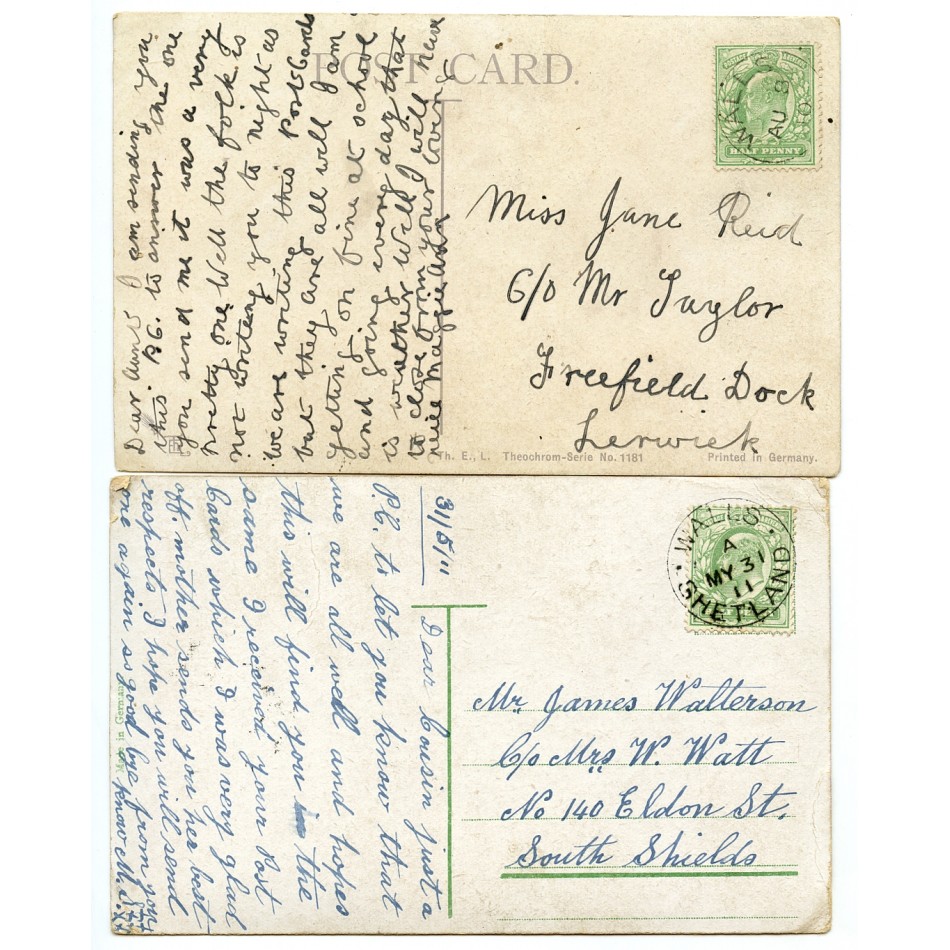 POST CARD.
Dear Aunt I am sending you
this P.C. to answer the one
you send me it was a very
pretty one Well the folk is
not writing you to night as
we are writing this Post Cards
but they are all well I am
getting on fine at school
and going every day that
is weather Well I will have
to close from your loving
neice Maggie Ann
WALLS
AU 8
10
HALF PENNY
Miss Jane Reid
C/o Mr Taylor
Freefield Dock
Lerwick
Th. E., L. Theochrom-Serie No. 1181
Printed in Germany.
31/5/11
Dear Cousin just a
P.C. to let you know that
we are all well and hopes
this will find you in the
same I received your Post
Cards which I was very glad
off. mother sends you her best
respects I hope you will send
me again so good bye from you
know M.
Made in Germany
WALLS.
A
MY 31
11
SHETLAND
Mr. James Walterson
C/o Mrs W. Watt
No 140 Eldon St.
South Shields